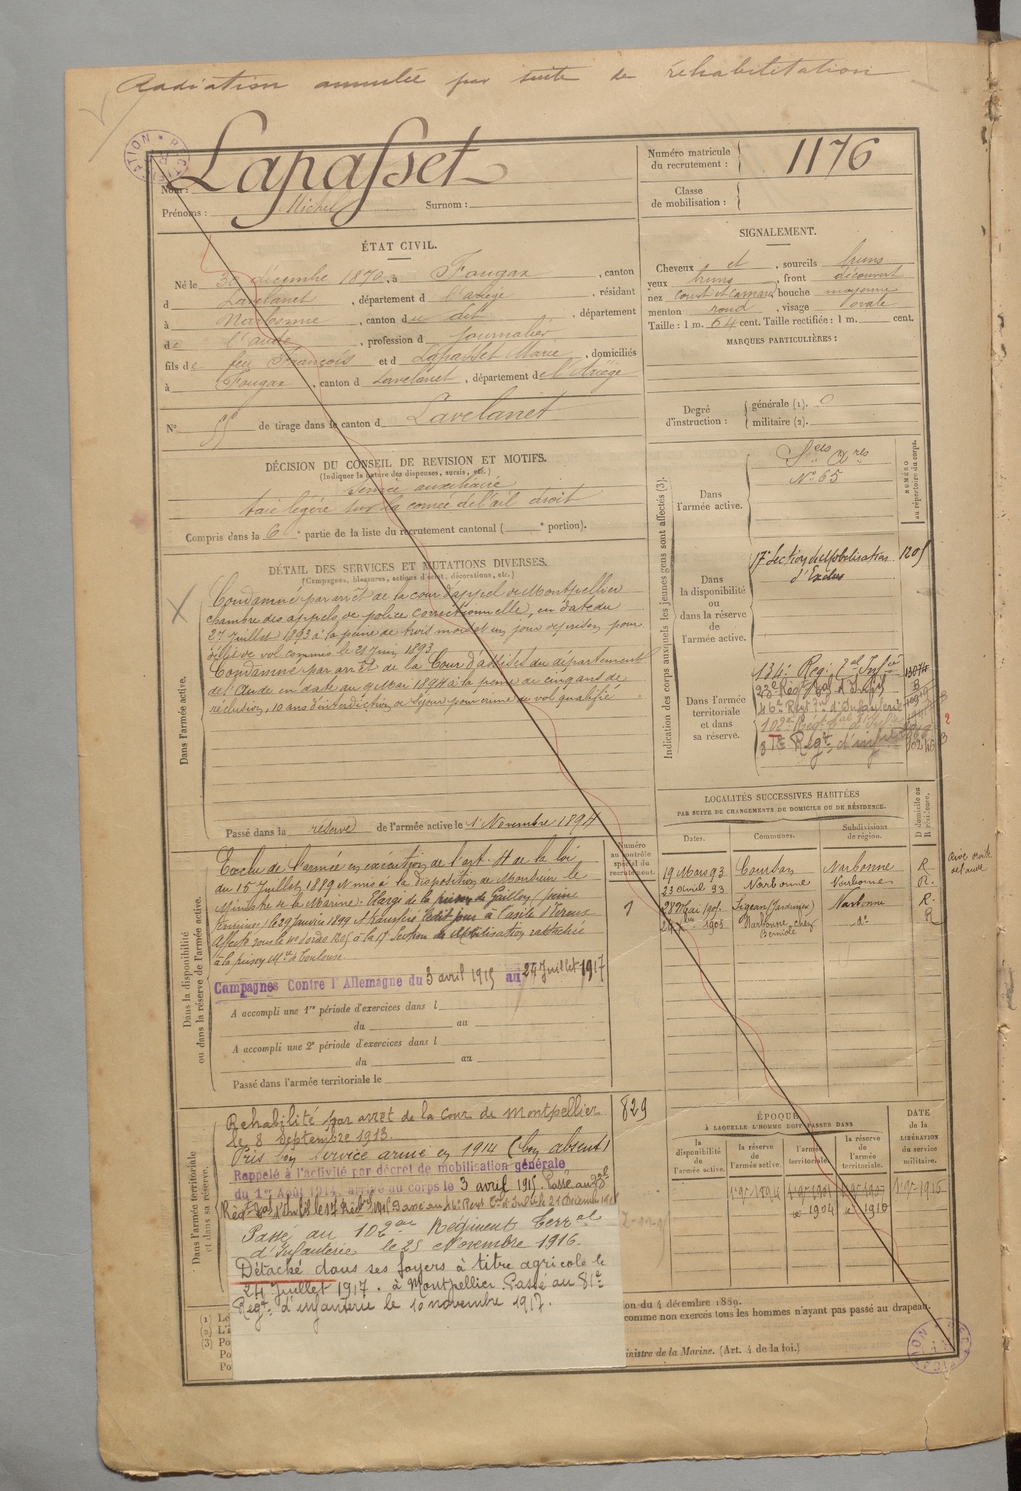 Radiation annulée par suite de réhabilitation
Lapasset
Nom :
Prénoms : Michel Surnom :
Numéro matricule du recrutement : 1176
Classe de mobilisation :
ÉTAT CIVIL.
Né le 30 décembre 1870, à Fougax, canton
d Lavelanet, département d l'ariège, résidant
à Narbonne, canton du dit, département
de l'aude, profession d journalier
fils de feu François et d Lapasset Marie, domiciliés
à Fougax, canton d Lavelanet, département de l'Ariège
N° de tirage dans le canton d Lavelanet
SIGNALEMENT.
Cheveux et, sourcils bruns
yeux bruns, front découvert
nez court et camard, bouche moyenne
menton rond, visage ovale
Taille : 1 m. 64 cent. Taille rectifiée : 1 m. cent.
MARQUES PARTICULIÈRES :
Degré d'instruction : générale (1). 0
militaire (2).
DÉCISION DU CONSEIL DE REVISION ET MOTIFS.
(Indiquer la nature des dispenses, sursis, etc.)
Service auxiliaire
taie légère sur la cornée de l'œil droit
Compris dans la 6e partie de la liste du recrutement cantonal ( e portion).
DÉTAIL DES SERVICES ET MUTATIONS DIVERSES.
(Campagnes, blessures, actions d'éclat, décorations, etc.)
Dans l'armée active.
Condamné par arrêt de la cour d'appel de Montpellier
chambre des appels de police correctionnelle, en date du
27 Juillet 1893 à la peine de trois mois et un jour de prison pour
délit de vol commis le 21 Juin 1893
Condamné par arrêt de la Cour d'assises du département
de l'Aude en date du 9 Mai 1894 à la peine de cinq ans de
réclusion, 10 ans d'interdiction de séjour pour crime de vol qualifié
Passé dans la réserve de l'armée active le 1er Novembre 1894
Indication des corps auxquels les jeunes gens sont affectés (3).
NUMÉRO au répertoire du corps.
Dans l'armée active.
Sces Axres
N° 65
Dans la disponibilité ou dans la réserve de l'armée active.
17e Section de Mobilisation
d'Exclus
1205
Dans l'armée territoriale et dans sa réserve.
134e Reg. tal Infie
46e Regt tal d'Infanterie
102e Regt tal d'Infie
81e Regt d'infanterie
LOCALITÉS SUCCESSIVES HABITÉES
PAR SUITE DE CHANGEMENTS DE DOMICILE OU DE RÉSIDENCE.
Dates. Communes. Subdivisions de région. D domicile ou R résidence.
19 Mars 93 Coursan Narbonne R.
23 avril 93 Narbonne Narbonne R.
28 Mai 1901 Sigean (Jardinier) Narbonne R.
1903 Narbonne, chez do R
Dans la disponibilité ou dans la réserve de l'armée active.
Numéro au contrôle spécial du recrutement.
Exclu de l'armée en exécution de l'art. 4 de la loi
du 15 Juillet 1889 et mis à la disposition de Monsieur le
Ministre de la Marine. Élargi de la prison de Gaillon, peine
terminée, le 29 Janvier 1899
Affecté sous le n° d'ordre 1205 à la 17e Section de Mobilisation rattachée
à la prison Mre de Toulouse.
Campagnes Contre l'Allemagne du 3 avril 1915 au 24 Juillet 1917
A accompli une 1re période d'exercices dans l
du au
A accompli une 2e période d'exercices dans l
du au
Passé dans l'armée territoriale le
Dans l'armée territoriale et dans sa réserve.
829
Réhabilité par arrêt de la cour de Montpellier
le 8 septembre 1913.
Pris bon service armé en 1914 (bon absent)
Rappelé à l'activité par décret de mobilisation générale
du 1er Août 1914. arrivé au corps le 3 avril 1915
Passé au 102ème Régiment terral
d'Infanterie le 25 Novembre 1916.
Détaché dans ses foyers à titre agricole le
24 Juillet 1917. à Montpellier Passé au 81e
Régt d'infanterie le 10 novembre 1917.
ÉPOQUE
À LAQUELLE L'HOMME DOIT PASSER DANS
la disponibilité de l'armée active.
la réserve de l'armée active.
l'armée territoriale.
la réserve de l'armée territoriale.
DATE de la LIBÉRATION du service militaire.
1904
1910
on du 4 décembre 1889.
comme non exercés tous les hommes n'ayant pas passé au drapeau.
inistre de la Marine. (Art. 4 de la loi.)